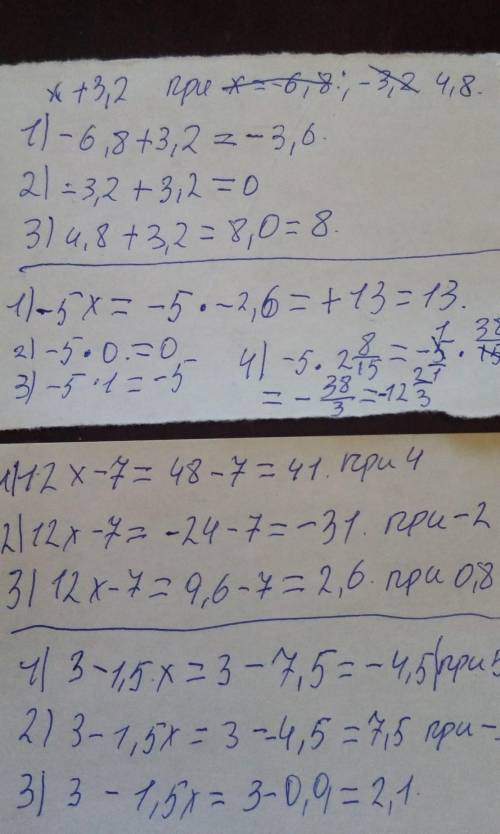 x+3,2 при x=-6,8; -3,2 4,8.
1) -6,8+3,2=-3,6.
2) -3,2+3,2=0
3) 4,8+3,2=8,0=8.
1) -5x=-5·-2,6=+13=13.
2) -5·0.=0
3) -5·1=-5
4) -5·2 8/15=-5·38/15
=-38/3=-12 2/3
1) 12x-7=48-7=41. при 4
2) 12x-7=-24-7=-31. при -2
3) 12x-7=9,6-7=2,6. при 0,8
1) 3-1,5x=3-7,5=-4,5 при 5
2) 3-1,5x=3--4,5=7,5 при -
3) 3-1,5x=3-0,9=2,1.